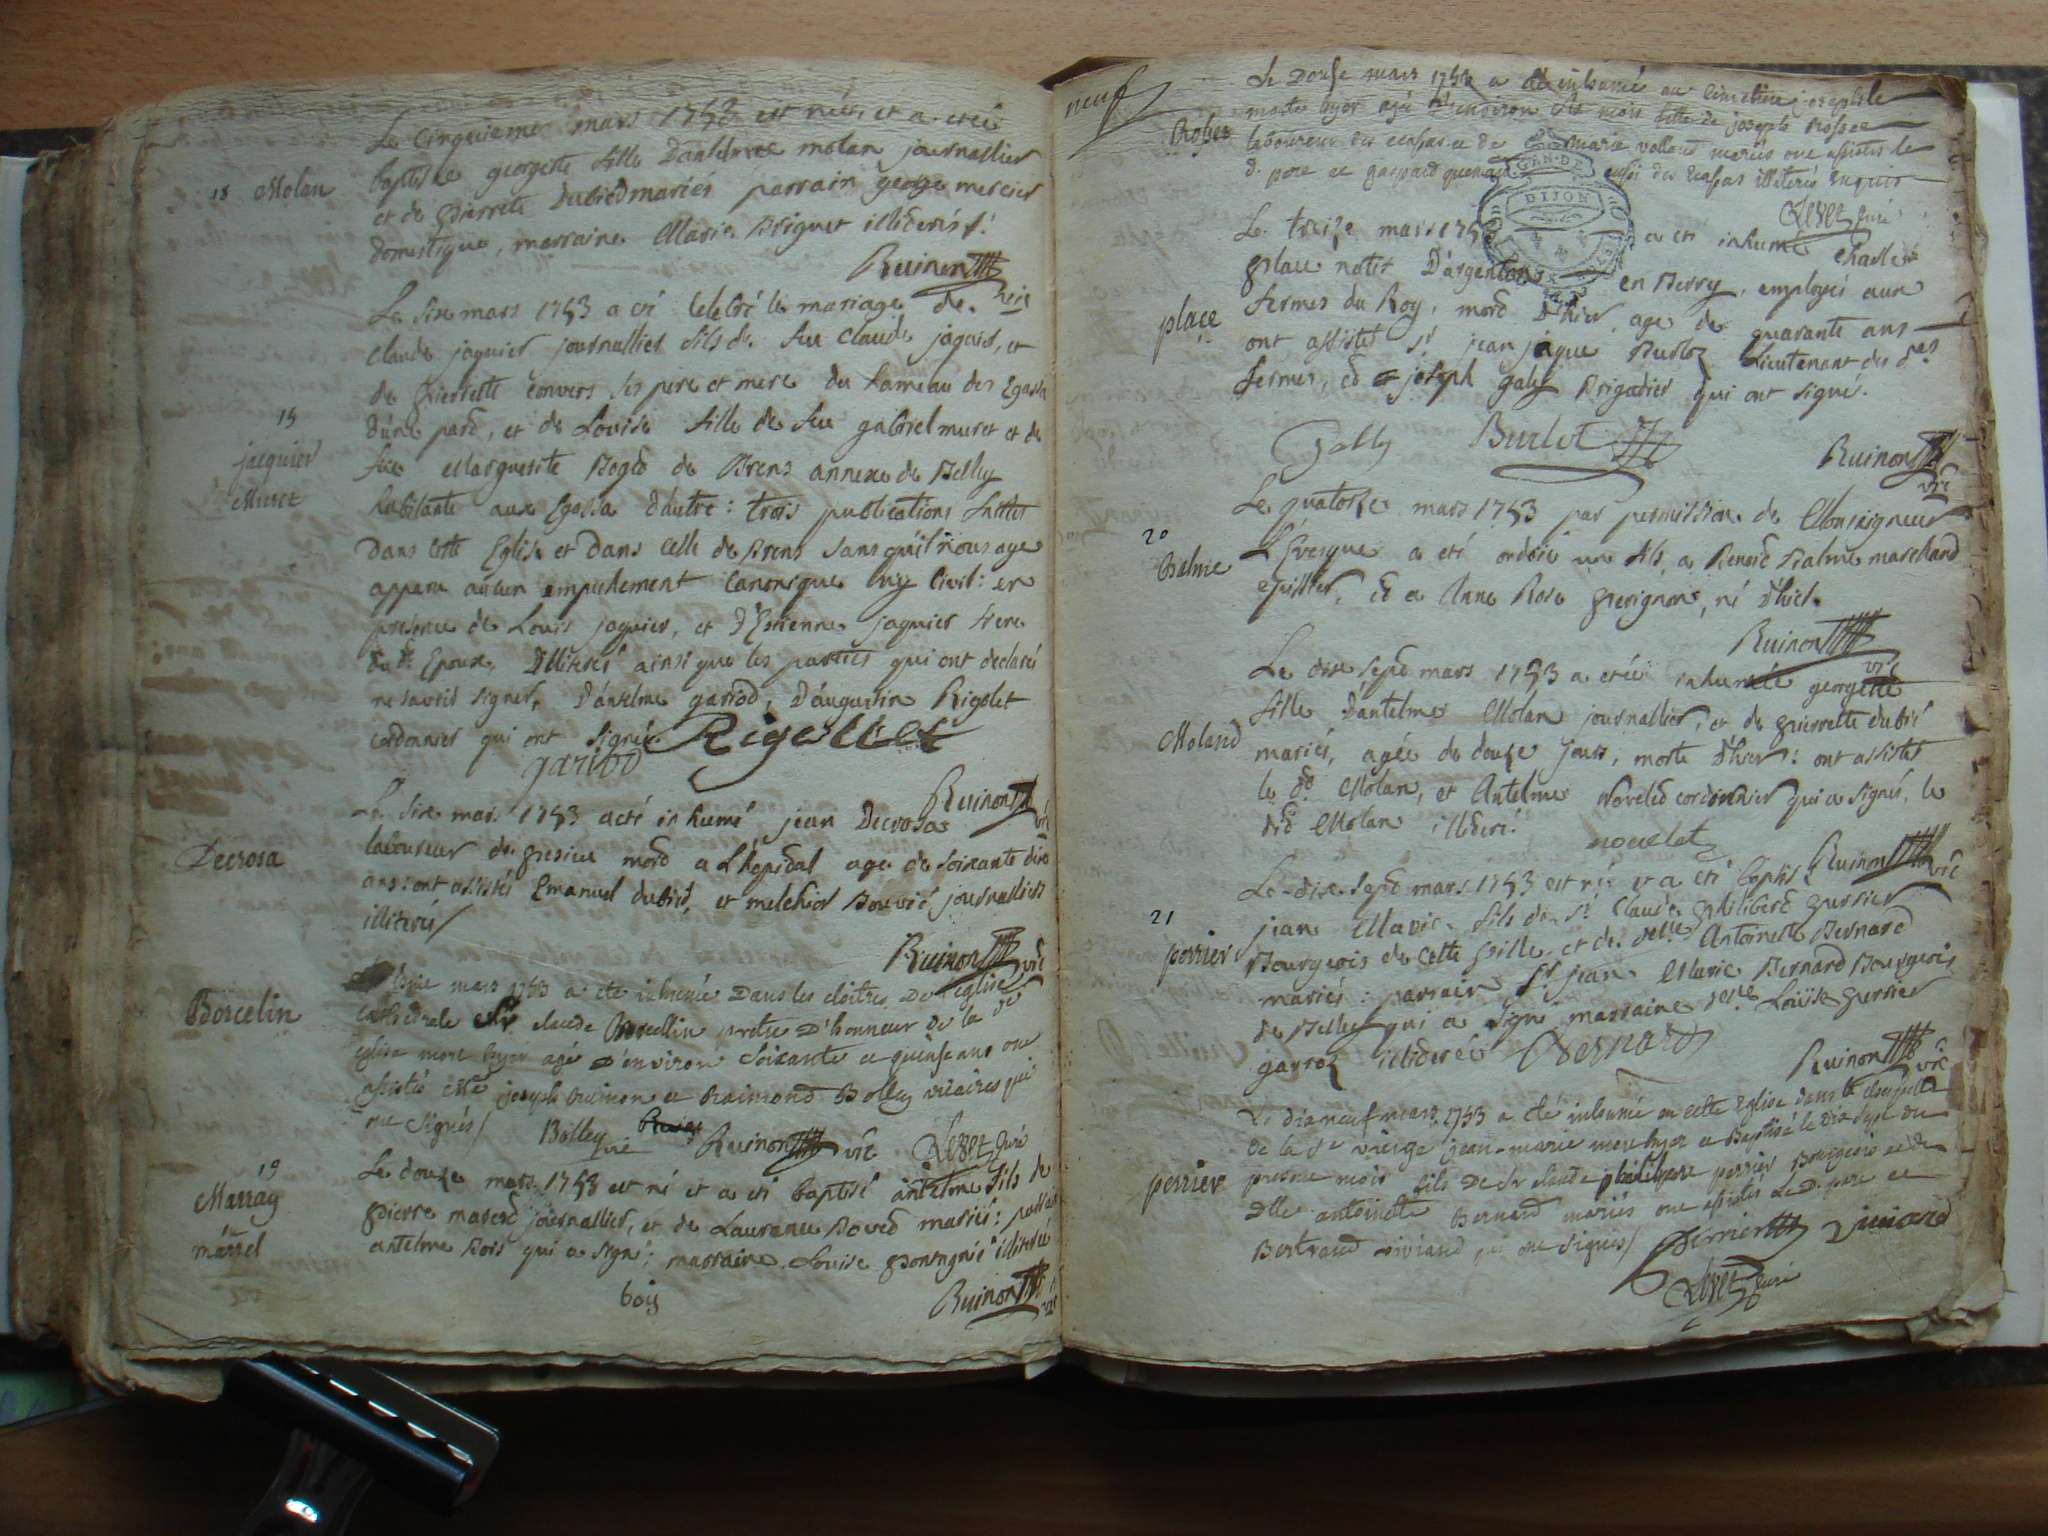 Le cinquieme mars 1753 est née, et a etée
18 Molan baptisée georgette fille Dantelme molan journallier
et de pierrete Dubied mariés parrain george mercier
domestique, marraine Marie Briguet illiterés /.
Ruinon vire
Le six mars 1753 a eté celebré le mariage de
claude jaquier journallier fils de feu claude jaquier, et
de pierrette convers ses pere et mere du hameau des Egassa
15 D'une part, et de Louise fille de feu gabriel muret et de
jaquier feue Marguerite Boget de Brens annexe de Belley
Muret habitante aux Egassa d'autre : trois publications faittes
Dans cette Eglise et Dans celle de Brens sans qu'il nous aye
apparu aucun empechement canonique ny civil : en
presence de Louis jaquier, et D'Estienne jaquier frere
du dt. Epoux, Illiterés ainsi que les parties qui ont declaré
ne savoir signer, D'anselme garrod, D'augustin Rigolet
cordonnier qui ont signé. Rigollet
garrod
Ruinon vre
Le six mars 1753 a eté inhumé jean Decrosa
Decrosa laboureur de gresieu mord a L'hopidal age de soixante dix
ans : ont assistés Emanuel dubied, et melchior Bouvié journalliers
illiterés /
Ruinon vre
mars 1753 a ete inhumé Dans les cloitres De l'eglise
Borcelin cathedrale Mre claude Borcellin pretre D'honneur de la de
eglise mort hyer agé D'environ soixante et quinse ans ont
assistés Mre joseph Ruinon et Raimond Bolley vicaires qui
ont signés / Bolley vre Ruinon vre Levet curé
19 Le douze mars 1753 est né et a eté baptisé antelme fils de
Marray pierre mared journallier, et de Laurance Boved mariés : parrain
ou antelme Bois qui a signé ; marraine Louise illiterée
marrel
bois Ruinon vre
neuf
Le Douse mars 1753 a eté inhumée au cimetiere josephte
Rosset morte hyer agée d'environ six mois fille de joseph Rosset
laboureur des ecassas et de marie vollant mariés ont assistés le
d. pere et gaspard aussi des Ecassas illiterés enquis
Levet curé
Le treize mars 175 a eté inhumé charle
place place natif D'argenton en Berry, employé aux
fermes du Roy, mord D'hier, age de quarante ans
ont assistés sr jean jaque Burloz Lieutenant des dites
fermes, et joseph galy Brigadier qui ont signé.
Gally Burlot Ruinon vre
20 Le quatorze mars 1753 par permission de Monseigneur
Balme L'Evesque a eté ondoié un fils a Benoid Balme marchand
epissier, et a Anne Rose grevignon, né D'hier.
Ruinon vre
Le dix sept mars 1753 a etée inhumée georgette
fille D'antelme Molan journallier, et de pierrette dubié
Moland mariés, agée de douze jours, morte D'hier : ont assistés
le dt. Molan, et Antelme Noveled cordonnier qui a signé, le
did Molan illiteré.
nouelet Ruinon vre
21 Le dix sept mars 1753 est né et a eté baptisé
perrier jean Marie fils de Sr. Claude philiberd perrier
Bourgeois de cette ville, et de delle Antoinette Bernard
mariés : parrain Sr. jean Marie Bernard Bourgeois
de Belley qui a signé marraine delle Louïse perrier
garroz illiterée Bernard Ruinon vre
Le dix neuf mars 1753 a eté inhumé en cette Eglise dans la chapelle
de la Ste vierge jean-marie mort hyer et Baptisé le dix sept du
perrier presme mois fils De Sr claude philibere perrier Bourgeois et de
Dlle antoinette Bernard mariés ont assistés Le D. pere et
Bertrand viviand qui ont signés / Perrier viviand
Levet curé
GEN. DE
DIJON